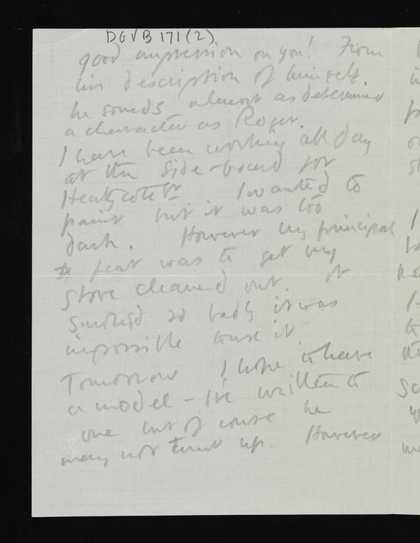 DGVB 171 (2)
good impression on you! From
his description of himself.
he sounds almost as determined
a character as Roger.
I have been working all day
at the side-board for
Heathcote
I wanted to
paint but it was too
dark. However my principal
feat was to get my
stove cleaned out. It
smoked so badly it was
impossible to use it.
Tomorrow I hope to have
a model - I've written to
one but of course he
may not turn up. However